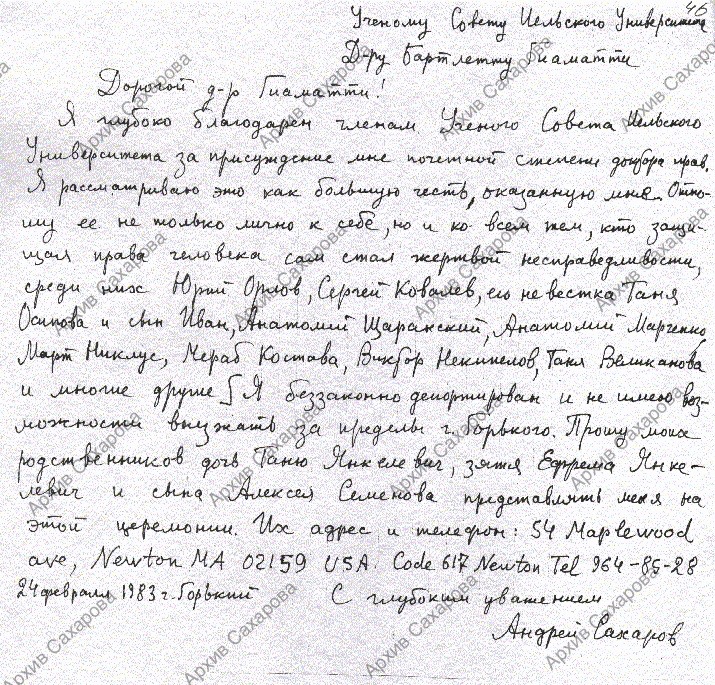 46
Ученому Совету Иельского Университета
Д-ру Бартлетту Гиаматти
Дорогой д-р Гиаматти!
Я глубоко благодарен членам Ученого Совета Иельского
Университета за присуждение мне почетной степени доктора прав.
Я рассматриваю это как большую честь, оказанную мне. Отно-
шу ее не только лично к себе, но и ко всем тем, кто защи-
щая права человека сам стал жертвой несправедливости,
среди них Юрий Орлов, Сергей Ковалев, его невестка Таня
Осипова и сын Иван, Анатолий Щаранский, Анатолий Марченко,
Март Никлус, Мераб Костава, Виктор Некипелов, Таня Великанова
и многие другие [Я беззаконно депортирован и не имею воз-
можности выезжать за пределы г. Горького. Прошу моих
родственников дочь Таню Янкелевич, зятя Ефрема Янке-
левич и сына Алексея Семенова представлять меня на
этой церемонии. Их адрес и телефон: 54 Maplewood
ave, Newton MA 02159 USA. Code 617 Newton Tel 964-85-28
24 февраля 1983 г. Горький С глубоким уважением
Андрей Сахаров
Архив Сахарова